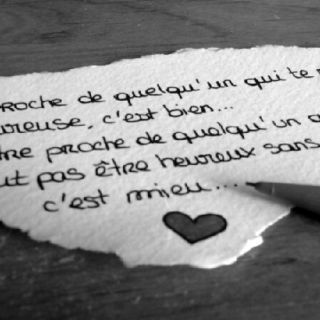 roche de quelqu'un qui te
reuse, c'est bien...
tre proche de quelqu'un
ut pas être heureux sans
c'est mieu...